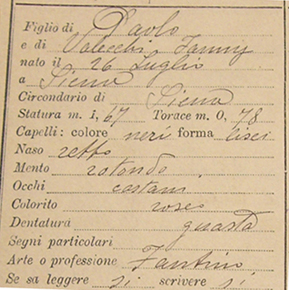 Figlio di Paolo
e di Valecchi Fanny
nato il 26 Luglio
a Siena
Circondario di Siena
Statura m. 1, 67 Torace m. 0, 78
Capelli: colore neri forma lisci
Naso retto
Mento rotondo
Occhi castani
Colorito roseo
Dentatura guasta
Segni particolari
Arte o professione Fantino
Se sa leggere sì scrivere sì